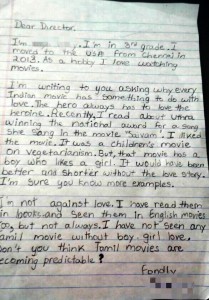 Dear Director,
I'm . I'm in 3rd grade. I
moved to the USA from Chennai in
2013. As a hobby I love watching
movies.
I'm writing to you asking why every
Indian movie has something to do with
love. The hero always has to love the
heroine. Recently, I read about Uthra
winning the national award for a song
she sang in the movie Saivam. I liked
the movie. It was a children's movie
on vegetarianism. But, that movie has a
boy who likes a girl. It would have been
better and shorter without the love story.
I'm sure you know more examples.
I'm not against love. I have read them
in books and seen them in English movies
too, but not always. I have not seen any
amil movie without boy girl love.
Don't you think Tamil movies are
ecoming predictable?
Fondly